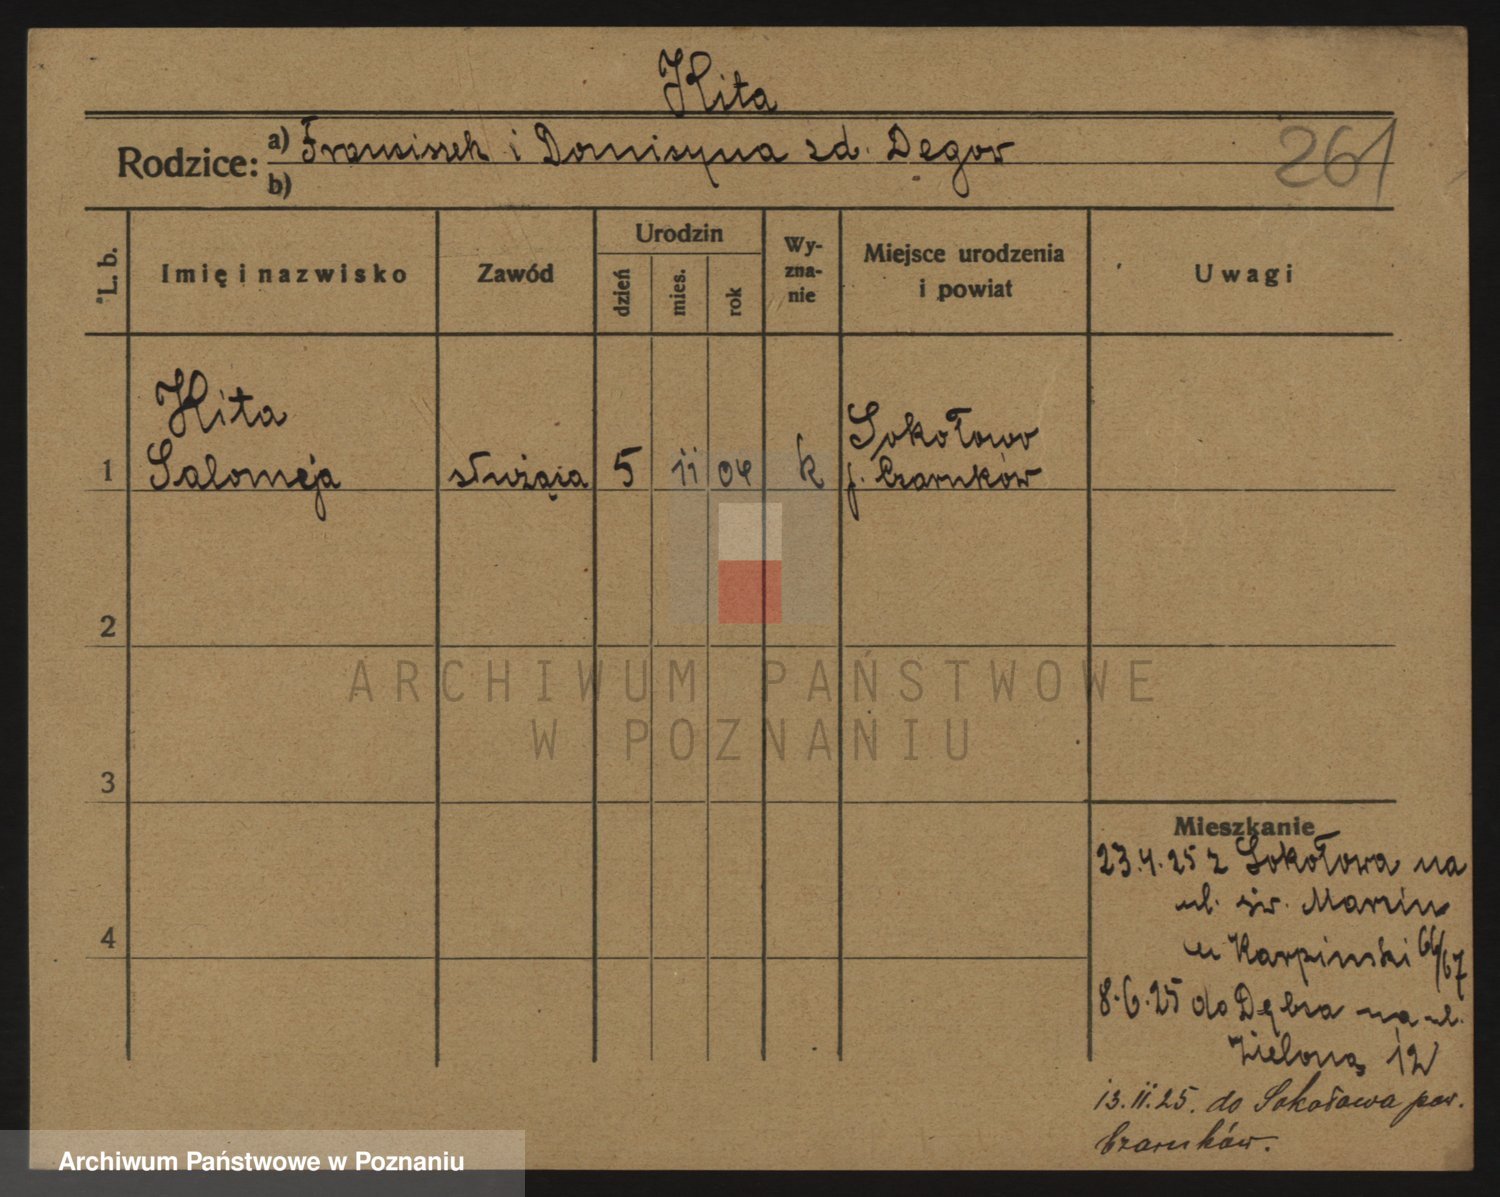 Hita
Rodzice: a) Franciszek i Domicyna zd. Degor
b)
261
L. b.
Imię i nazwisko
Zawód
Urodzin
dzień
mies.
rok
Wy-
zna-
nie
Miejsce urodzenia
i powiat
Uwagi
1
Hita
Salomeja
służąca
5
11
04
k
Sokołowo
p. Czarnków
2
3
4
ARCHIWUM PAŃSTWOWE
W POZNANIU
Mieszkanie
23.4.25 z Sokołowa na
ul. św. Marcin
u Karpinski 66/67
8.6.25 do Dębca na ul.
Zieloną 12
13.11.25. do Sokołowa pow.
Czarnków.
Archiwum Państwowe w Poznaniu